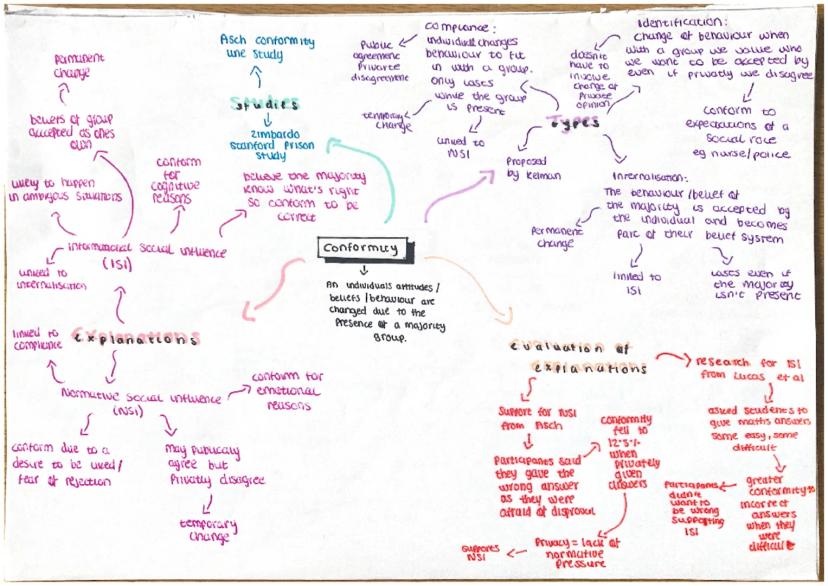 Conformity
An individuals attitudes/
beliefs/behaviour are
changed due to the
presence of a majority
group.
Studies
Asch conformity
line study
Zimbardo
Stanford Prison
Study
Types
Proposed
by Kelman
Compliance:
individual changes
behaviour to fit
in with a group.
only lasts
while the group
is present
Public
agreement
Private
disagreement
temporary
change
linked to
NSI
Identification:
change of behaviour when
with a group we value who
we want to be accepted by
even if privately we disagree
doesn't
have to
involve
change of
private
opinion
conform to
expectations of a
social role
eg nurse/police
Internalisation:
The behaviour/belief of
the majority is accepted by
the individual and becomes
part of their belief system
Permanent
change
linked to
ISI
Lasts even if
the majority
isn't present
Explanations
informational social influence
(ISI)
permanent
change
beliefs of group
accepted as ones
own
likely to happen
in ambigous situations
conform
for
cognitive
reasons
believe the majority
know what's right
so conform to be
correct
linked to
internalisation
Normative Social influence
(NSI)
linked to
compliance
conform for
emotional
reasons
conform due to a
desire to be liked/
fear of rejection
may publically
agree but
privatly disagree
temporary
change
evaluation of
explanations
Support for NSI
from Asch
Participants said
they gave the
wrong answer
as they were
afraid of disproval
conformity
fell to
12.5%
when
privately
given
answers
Privacy = lack of
normative
pressure
supports
NSI
research for ISI
from Lucas et al
asked students to
give maths answers
some easy, some
difficult
greater
conformity to
incorrect
answers
when they
were
difficult
Participants
didn't
want to
be wrong
supporting
ISI